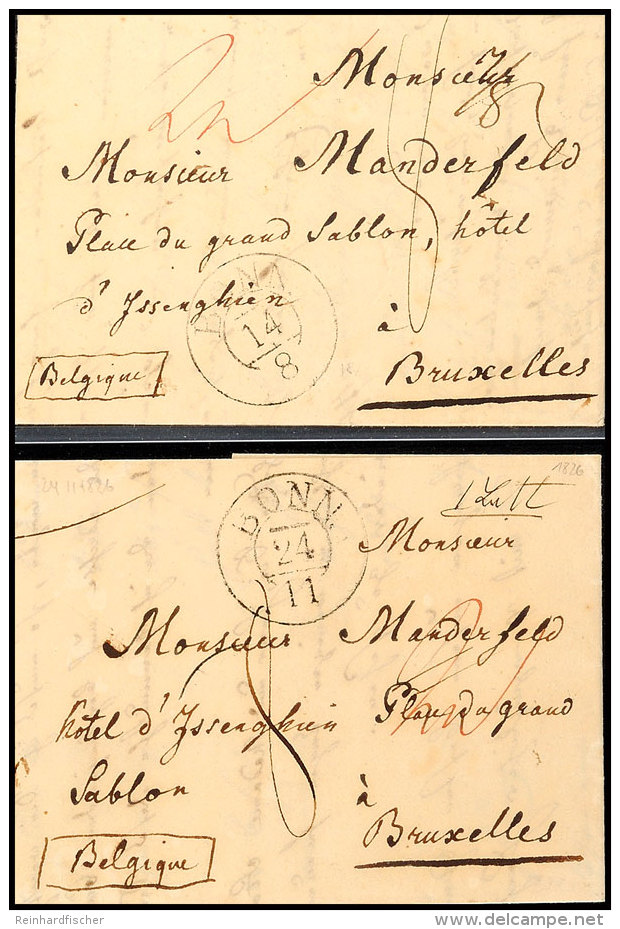 Monsieur
Monsieur Manderfeld
Place du grand Sablon, hôtel
d'Issenghien à
BONN
14
8
Belgique
Bruxelles
24 11 1826
1826
BONN
24
11
Monsieur
Monsieur Manderfeld
hôtel d'Issenghien Place du grand
Sablon à
Belgique
Bruxelles
Reinhardfischer
delcampe.net